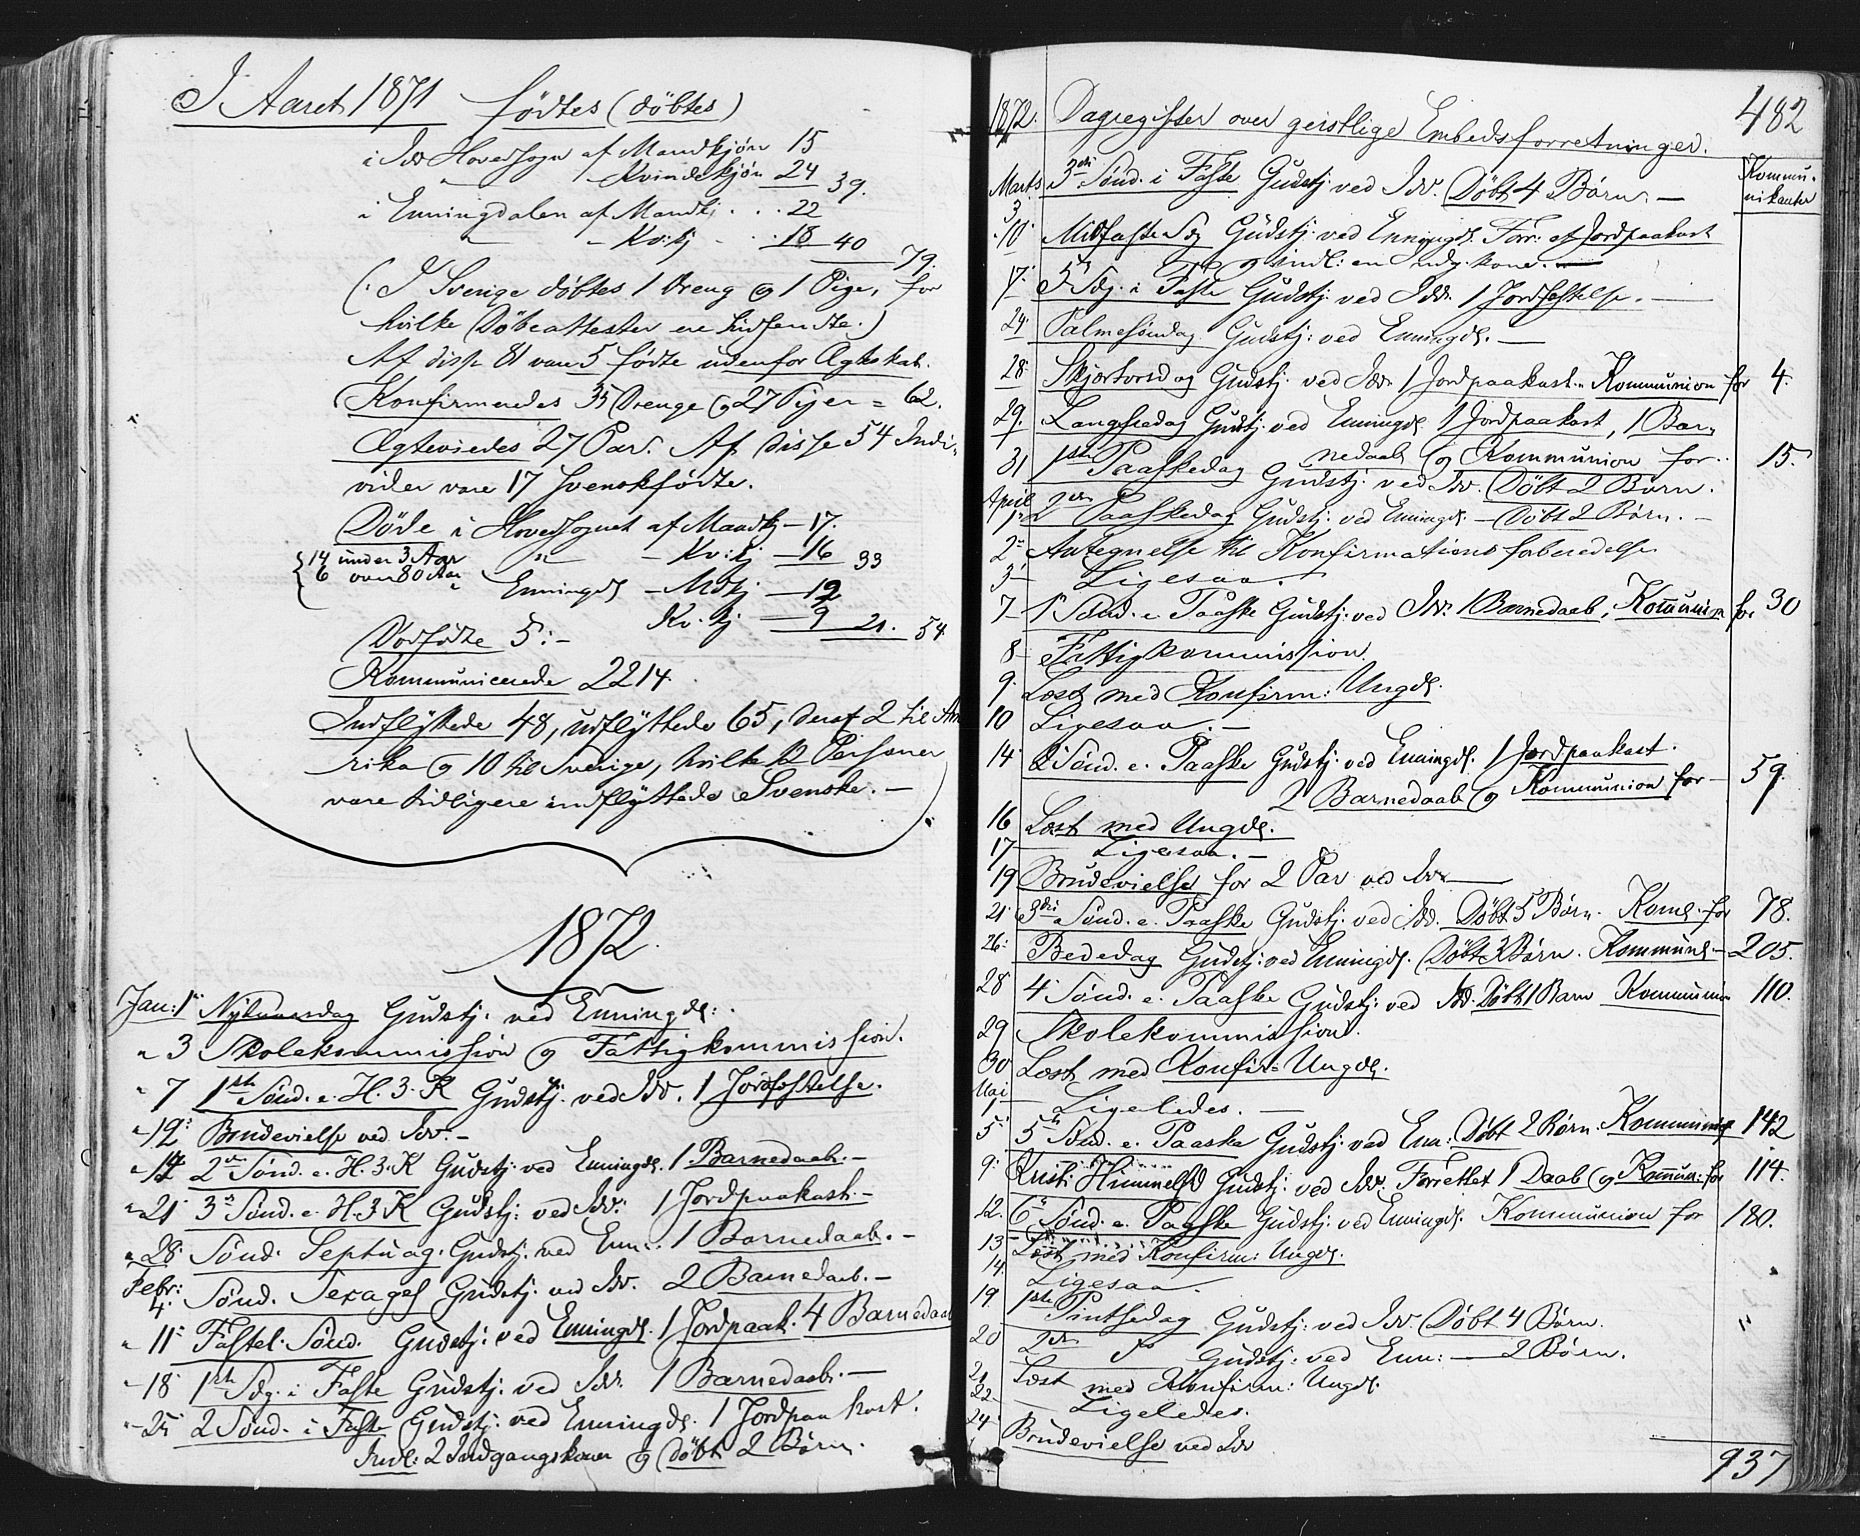 I Aaret 1871 fødtes (døbtes)
i Idd Hovedsogn af Mandkjøn 15
" - Kvindekjøn 24 39.
i Enningdalen af Mandkj. . . 22
" - Kv:kj - . . 18 40 79.
(: I Sverige døbtes 1 Dreng og 1 Pige, for
hvilke Døbeattester ere hidsendte.)
Af disse 81 vare 5 fødte udenfor Ægteskab.
Konfirmeredes 35 Drenge og 27 Piger = 62.
Ægteviedes 27 Par. Af disse 54 Indi-
vider vare 17 Svenskfødte.
Døde i Hovedsognet af Mandkj - 17.
{14 under 3 Aar " - Kv:kj - 16 33
6 over 80 Aar Enningd - Mdkj - 12
Kv. kj - 9 21. 54.
Dødfødte 5: -
Kommunicerede 2214.
Indflyttede 48, udflyttede 65, deraf 2 til Ame
rika og 10 til Sverige, hvilke 12 Personer
vare tidligere indflyttede Svenske. -
1872.
Jan: 1 Nytaarsdag Gudstj. ved Enningdl:
" 3 Skolekommission og Fattigkommission.
" 7 1ste Sønd. e. H. 3. K Gudstj. ved Idd. 1 Jordfæstelse.
" 12 Brudevielse ved Idd. -
" 14 2den Sønd. e. H. 3. K Gudstj. ved Enningdl. 1 Barnedaab. -
" 21 3die Sønd. e. H. 3 K Gudstj: ved Idd: 1 Jordpaakast. -
" 28 Sønd. Septuag. Gudstj. ved Enn:. 1 Barnedaab. -
Febr: 4. Sønd. Sexages Gudstj. ved Idd. 2 Barnedaab. -
" 11 Fastel. Sønd. Gudstj: ved Enningdl. 1 Jordpaak. 4 Barnedaab
" 18 1ste Sdg. i Faste Gudstj. ved Idd. 1 Barnedaab. -
" 25 2 Sønd. i Faste Gudstj. ved Enningdl. 1 Jordpaakast.
Indl: 2 Indgangskoner og Døbt 2 Børn.
482
1872. Dagregister over geistlige Embedsforretninger.
Kommu-
nikanter
Marts 3 3die Sønd. i Faste Gudstj. ved Idd. Døbt 4 Børn. -
10 Midfaste Sdg Gudstj. ved Enningdl. Forr: et Jordpaakast
og Indl: en Indg. kone. -
17 5te Sdg. i Faste Gudstj. ved Idd. 1 Jordfæstelse. -
24 Palmesøndag Gudstj: ved Enningdl. -
28. Skjærtorsdag Gudstj. ved Idd. 1 Jordpaakast. Kommunion for 4.
29. Langfredag Gudstj. ved Enningdl 1 Jordpaakast, 1 Bar-
nedaab og Kommunion for 15.
31 1ste Paaskedag Gudstj. ved Idd. Døbt 2 Børn.
April 1 2den Paaskedag Gudstj. ved Enningdl - Døbt 2 Børn. -
2 Antegnelse til Konfirmationsforberedelse
3 Ligesaa.
7 - 1ste Sønd. e. Paaske Gudstj: ved Idd: 1 Barnedaab, Kommunion for 30
8 Fattigkommission.
9. Læst med Konfirm: Ungdl.
10 Ligesaa. -
14 2 Sønd. e. Paaske Gudstj. ved Enningdl. 1 Jordpaakast.
2 Barnedaab og Kommunion for - 59.
16 Læst med Ungdl.
17 Ligesaa. -
19 Brudevielse for 2 Par ved Idd -
21. 3die Sønd. e. Paaske Gudstj. ved Idd. Døbt 5 Børn. Komn. for 78.
26: Bededag Gudstj. ved Enningdl. Døbt 3 Børn. Kommun. - 205.
28 4 Sønd. e. Paaske Gudstj: ved Idd. Døbt 1 Barn Kommunion 110.
29 Skolekommission.
30 Læst med Konfir: Ungdl.
Mai 1 Ligeledes. -
5 5te Sønd. e. Paaske Gudstj. ved Enn: Døbt 2 Børn. Kommunion 142
9. Krist: Himmelfd Gudstj: ved Idd. Forrettet 1 Daab og Kommun: for 114.
12. 6te Sønd. e. Paaske Gudstj. ved Enningdl. Kommunion for 180.
13 Læst med Konfirm: Ungdl.
14 Ligesaa.
19. 1ste Pintsedag Gudstj: ved Idd Døbt 4 Børn. "
20 2den do Gudstj: ved Enn: - 2 Børn.
21 Læst med Konfirm: Ungdl.
22 Ligeledes.
24. Brudevielse ved Idd
937